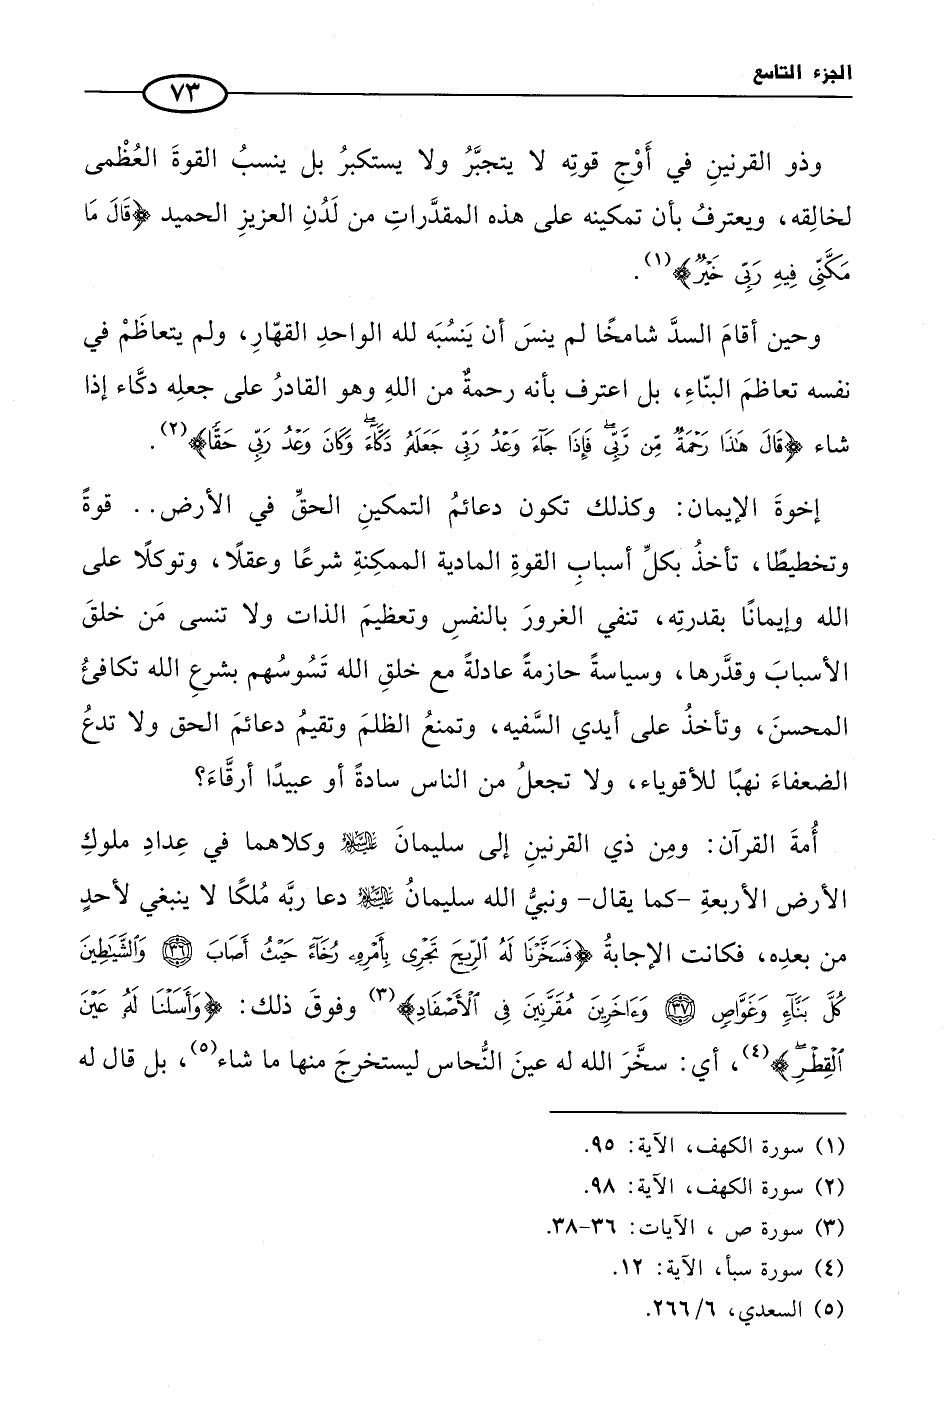 الجزء التاسع
٧٣
وذو القرنينِ في أَوْجِ قوتِه لا يتجبَّرُ ولا يستكبرُ بل ينسبُ القوةَ العُظْمى
لخالِقِه، ويعترفُ بأن تمكينه على هذه المقدَّراتِ من لَدُنِ العزيزِ الحميد ﴿قَالَ مَا
مَكَّنِّي فِيهِ رَبِّي خَيْرٌ﴾(١).
وحين أقامَ السدَّ شامخًا لم ينسَ أن يَنسُبَه لله الواحدِ القهّارِ، ولم يتعاظَمْ في
نفسه تعاظمَ البنّاءِ، بل اعترف بأنه رحمةٌ من اللهِ وهو القادرُ على جعلِه دكَّاء إذا
شاء ﴿قَالَ هَٰذَا رَحْمَةٌ مِّن رَّبِّي ۖ فَإِذَا جَآءَ وَعْدُ رَبِّي جَعَلَهُۥ دَكَّآءَ ۖ وَكَانَ وَعْدُ رَبِّي حَقًّا﴾(٢).
إخوةَ الإيمان: وكذلك تكون دعائمُ التمكينِ الحقِّ في الأرض.. قوةً
وتخطيطًا، تأخذُ بكلِّ أسبابِ القوةِ المادية الممكِنةِ شرعًا وعقلًا، وتوكلًا على
الله وإيمانًا بقدرتِه، تنفي الغرورَ بالنفسِ وتعظيمَ الذات ولا تنسى مَن خلقَ
الأسبابَ وقدَّرها، وسياسةً حازمةً عادلةً مع خلقِ الله تَسُوسُهم بشرعِ الله تكافئُ
المحسنَ، وتأخذُ على أيدي السَّفيه، وتمنعُ الظلمَ وتقيمُ دعائمَ الحق ولا تدعُ
الضعفاءَ نهبًا للأقوياء، ولا تجعلُ من الناس سادةً أو عبيدًا أرقَّاءَ؟
أُمةَ القرآن: ومِن ذي القرنينِ إلى سليمانَ عليه السلام وكلاهما في عِدادِ ملوكِ
الأرض الأربعةِ -كما يقال- ونبيُّ الله سليمانُ عليه السلام دعا ربَّه مُلكًا لا ينبغي لأحدٍ
من بعدِه، فكانت الإجابةُ ﴿فَسَخَّرْنَا لَهُ ٱلرِّيحَ تَجْرِي بِأَمْرِهِۦ رُخَآءً حَيْثُ أَصَابَ ٣٦ وَٱلشَّيَٰطِينَ
كُلَّ بَنَّآءٍ وَغَوَّاصٍ ٣٧ وَءَاخَرِينَ مُقَرَّنِينَ فِي ٱلْأَصْفَادِ﴾(٣) وفوقَ ذلك: ﴿وَأَسَلْنَا لَهُۥ عَيْنَ
ٱلْقِطْرِ ۖ﴾(٤)، أي: سخَّرَ الله له عينَ النُّحاس ليستخرجَ منها ما شاء(٥)، بل قال له
(١) سورة الكهف، الآية: ٩٥.
(٢) سورة الكهف، الآية: ٩٨.
(٣) سورة ص ، الآيات: ٣٦-٣٨.
(٤) سورة سبأ، الآية: ١٢.
(٥) السعدي، ٦/ ٢٦٦.